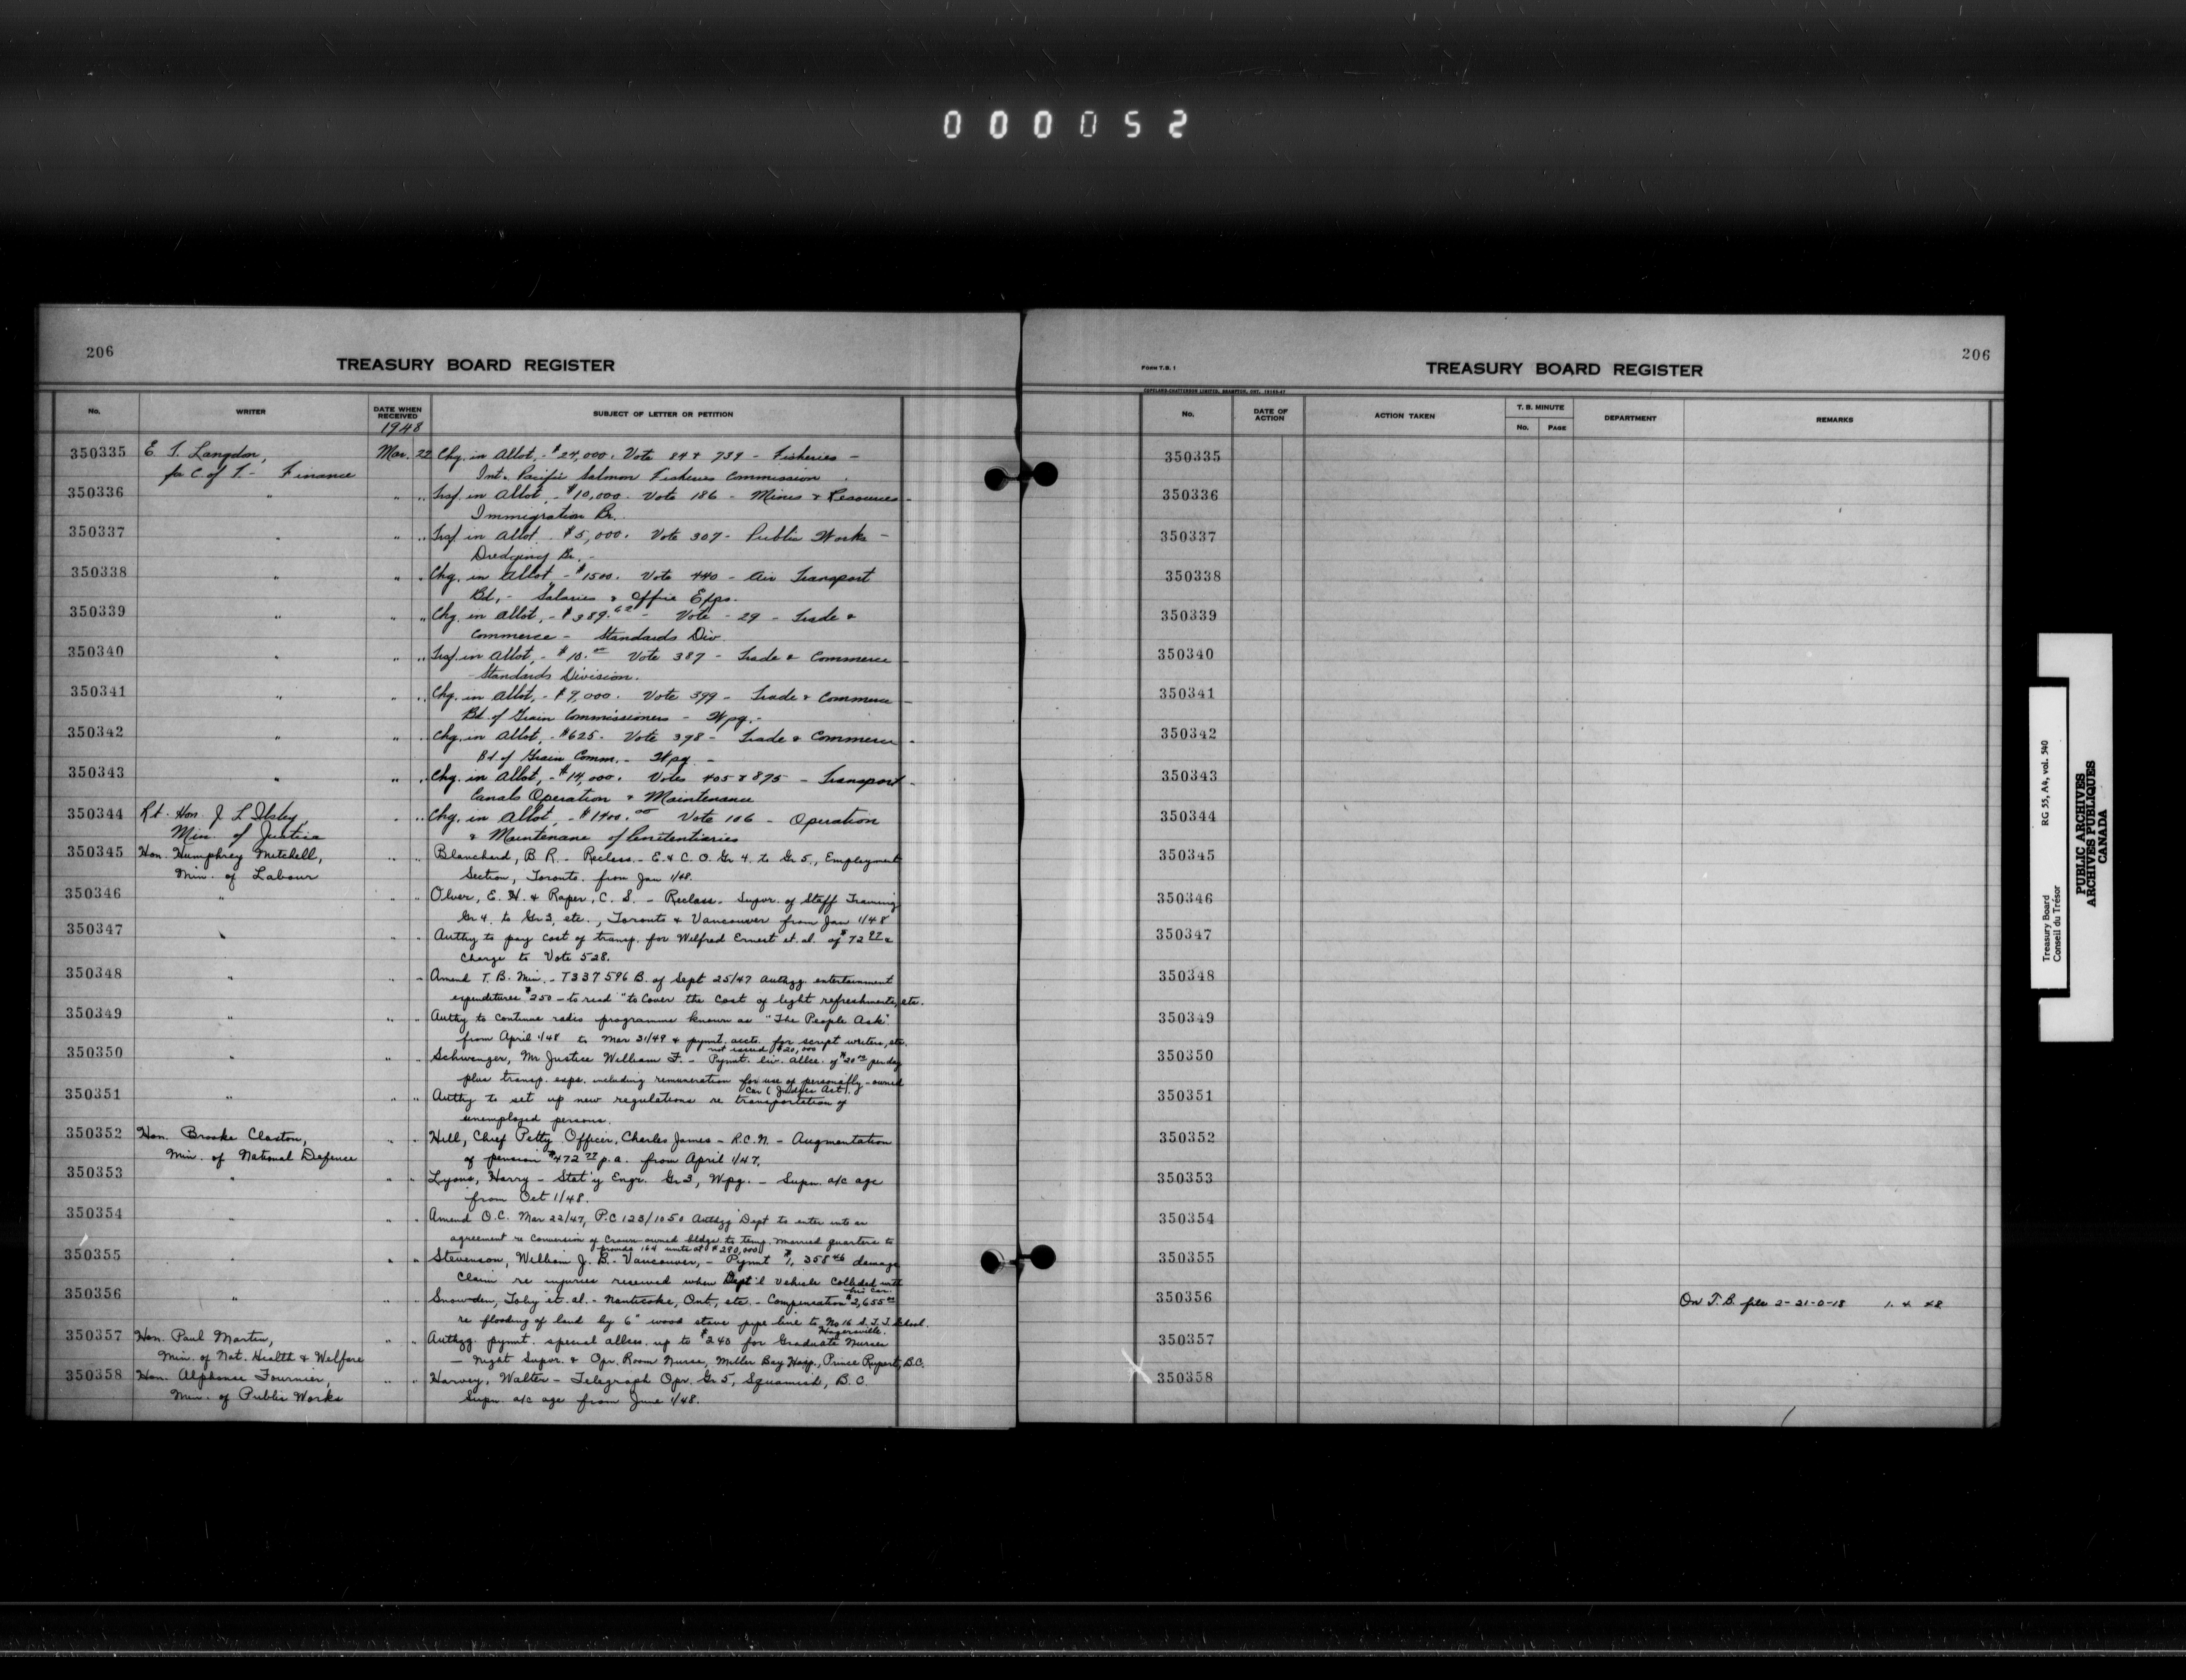 000052
206
TREASURY BOARD REGISTER
No. WRITER DATE WHEN RECEIVED SUBJECT OF LETTER OR PETITION
1948
350335 E. T. Langdon, Mar. 22 Chg. in Allot. - $24,000. Vote 84 & 739 - Fisheries -
for C. of T. - Finance Int. Pacific Salmon Fisheries Commission
350336 " " " Trsf. in Allot. - $10,000. Vote 186 - Mines & Resources -
Immigration Br.
350337 " " " Trsf. in Allot. $5,000. Vote 307 - Public Works -
Dredging Br. -
350338 " " " Chg. in Allot. - $1500. Vote 440 - Air Transport
Bd. - Salaries & Office Exps.
350339 " " " Chg. in Allot. - $389.62 - Vote - 29 - Trade &
Commerce - Standards Div.
350340 " " " Trsf. in Allot. - $10.00 Vote 387 - Trade & Commerce -
Standards Division.
350341 " " " Chg. in Allot. - $7,000. Vote 399 - Trade & Commerce -
Bd. of Grain Commissioners - Wpg. -
350342 " " " Chg. in Allot. - $625. Vote 398 - Trade & Commerce -
Bd. of Grain Comm. - Wpg. -
350343 " " " Chg. in Allot. - $14,000. Votes 405 & 875 - Transport -
Canals Operation & Maintenance
350344 Rt. Hon. J. L. Ilsley, " " Chg. in Allot. - $1400.00 Vote 106 - Operation
Min. of Justice & Maintenance of Penitentiaries
350345 Hon. Humphrey Mitchell, " " Blanchard, B. R. - Reclass. - E. & C. O. Gr 4. to Gr 5., Employment
Min. of Labour Section, Toronto. from Jan 1/48.
350346 " " " Olver, E. H. & Raper, C. S. - Reclass. - Supvr. of Staff Training
Gr 4. to Gr 3, etc., Toronto & Vancouver from Jan 1/48
350347 " " " Authy to pay cost of transp. for Wilfred Ernest et. al. of $72
charge to Vote 528.
350348 " " " Amend T. B. Min. - T337596 B. of Sept 25/47 Authzg. entertainment
expenditures $250 - to read "to Cover the cost of light refreshments, etc.
350349 " " " Authy to continue radio programme known as "The People Ask"
from April 1/48 to Mar 31/49 & pymnt. accts. for script writers, etc.
not exceed $20,000
350350 " " " Schwenger, Mr Justice William F. - Pymt. liv. allce. of $20.00 per day
plus transp. exps. including remuneration for use of personally-owned
car (Judges Act).
350351 " " " Authy to set up new regulations re transportation of
unemployed persons.
350352 Hon. Brooke Claxton, " " Hill, Chief Petty Officer, Charles James - R.C.N. - Augmentation
Min. of National Defence of pension $472 p.a. from April 1/47.
350353 " " " Lyons, Harry - Stat'y Engr. Gr 3, Wpg. - Supn. a/c age
from Oct 1/48.
350354 " " " Amend O.C. Mar 22/47, P.C 123/1050 Authzg Dept to enter into an
agreement re Conversion of Crown owned bldgs. to temp. married quarters to
provide 164 units at $280,000
350355 " " " Stevenson, William J. B. - Vancouver, - Pymnt $1,358.46 damage
Claim re injuries received when Dept'l vehicle collided with
his car.
350356 " " " Snowden, Toby et. al. - Nanticoke, Ont., etc. - Compensation $2,655.00
re flooding of land by 6" wood stave pipe line to No 16 S. F. T. School.
Hagersville.
350357 Hon. Paul Martin, " " Authzg. pymnt. special allces. up to $240 for Graduate Nurses
Min. of Nat. Health & Welfare - Night Supvr. & Opr. Room Nurse, Miller Bay Hosp., Prince Rupert, B.C.
350358 Hon. Alphonse Fournier, " " Harvey, Walter - Telegraph Opr. Gr 5, Squamish, B.C.
Min. of Public Works Supn. a/c age from June 1/48.
FORM T.B. 1
TREASURY BOARD REGISTER
206
COPELAND-CHATTERSON LIMITED, BRAMPTON, ONT.
No. DATE OF ACTION ACTION TAKEN T. B. MINUTE DEPARTMENT REMARKS
No. PAGE
350335
350336
350337
350338
350339
350340
350341
350342
350343
350344
350345
350346
350347
350348
350349
350350
350351
350352
350353
350354
350355
350356 On T.B. file 2-21-0-18
350357
350358
Treasury Board RG 55, A4, vol. 540
Conseil du Trésor
PUBLIC ARCHIVES
ARCHIVES PUBLIQUES
CANADA